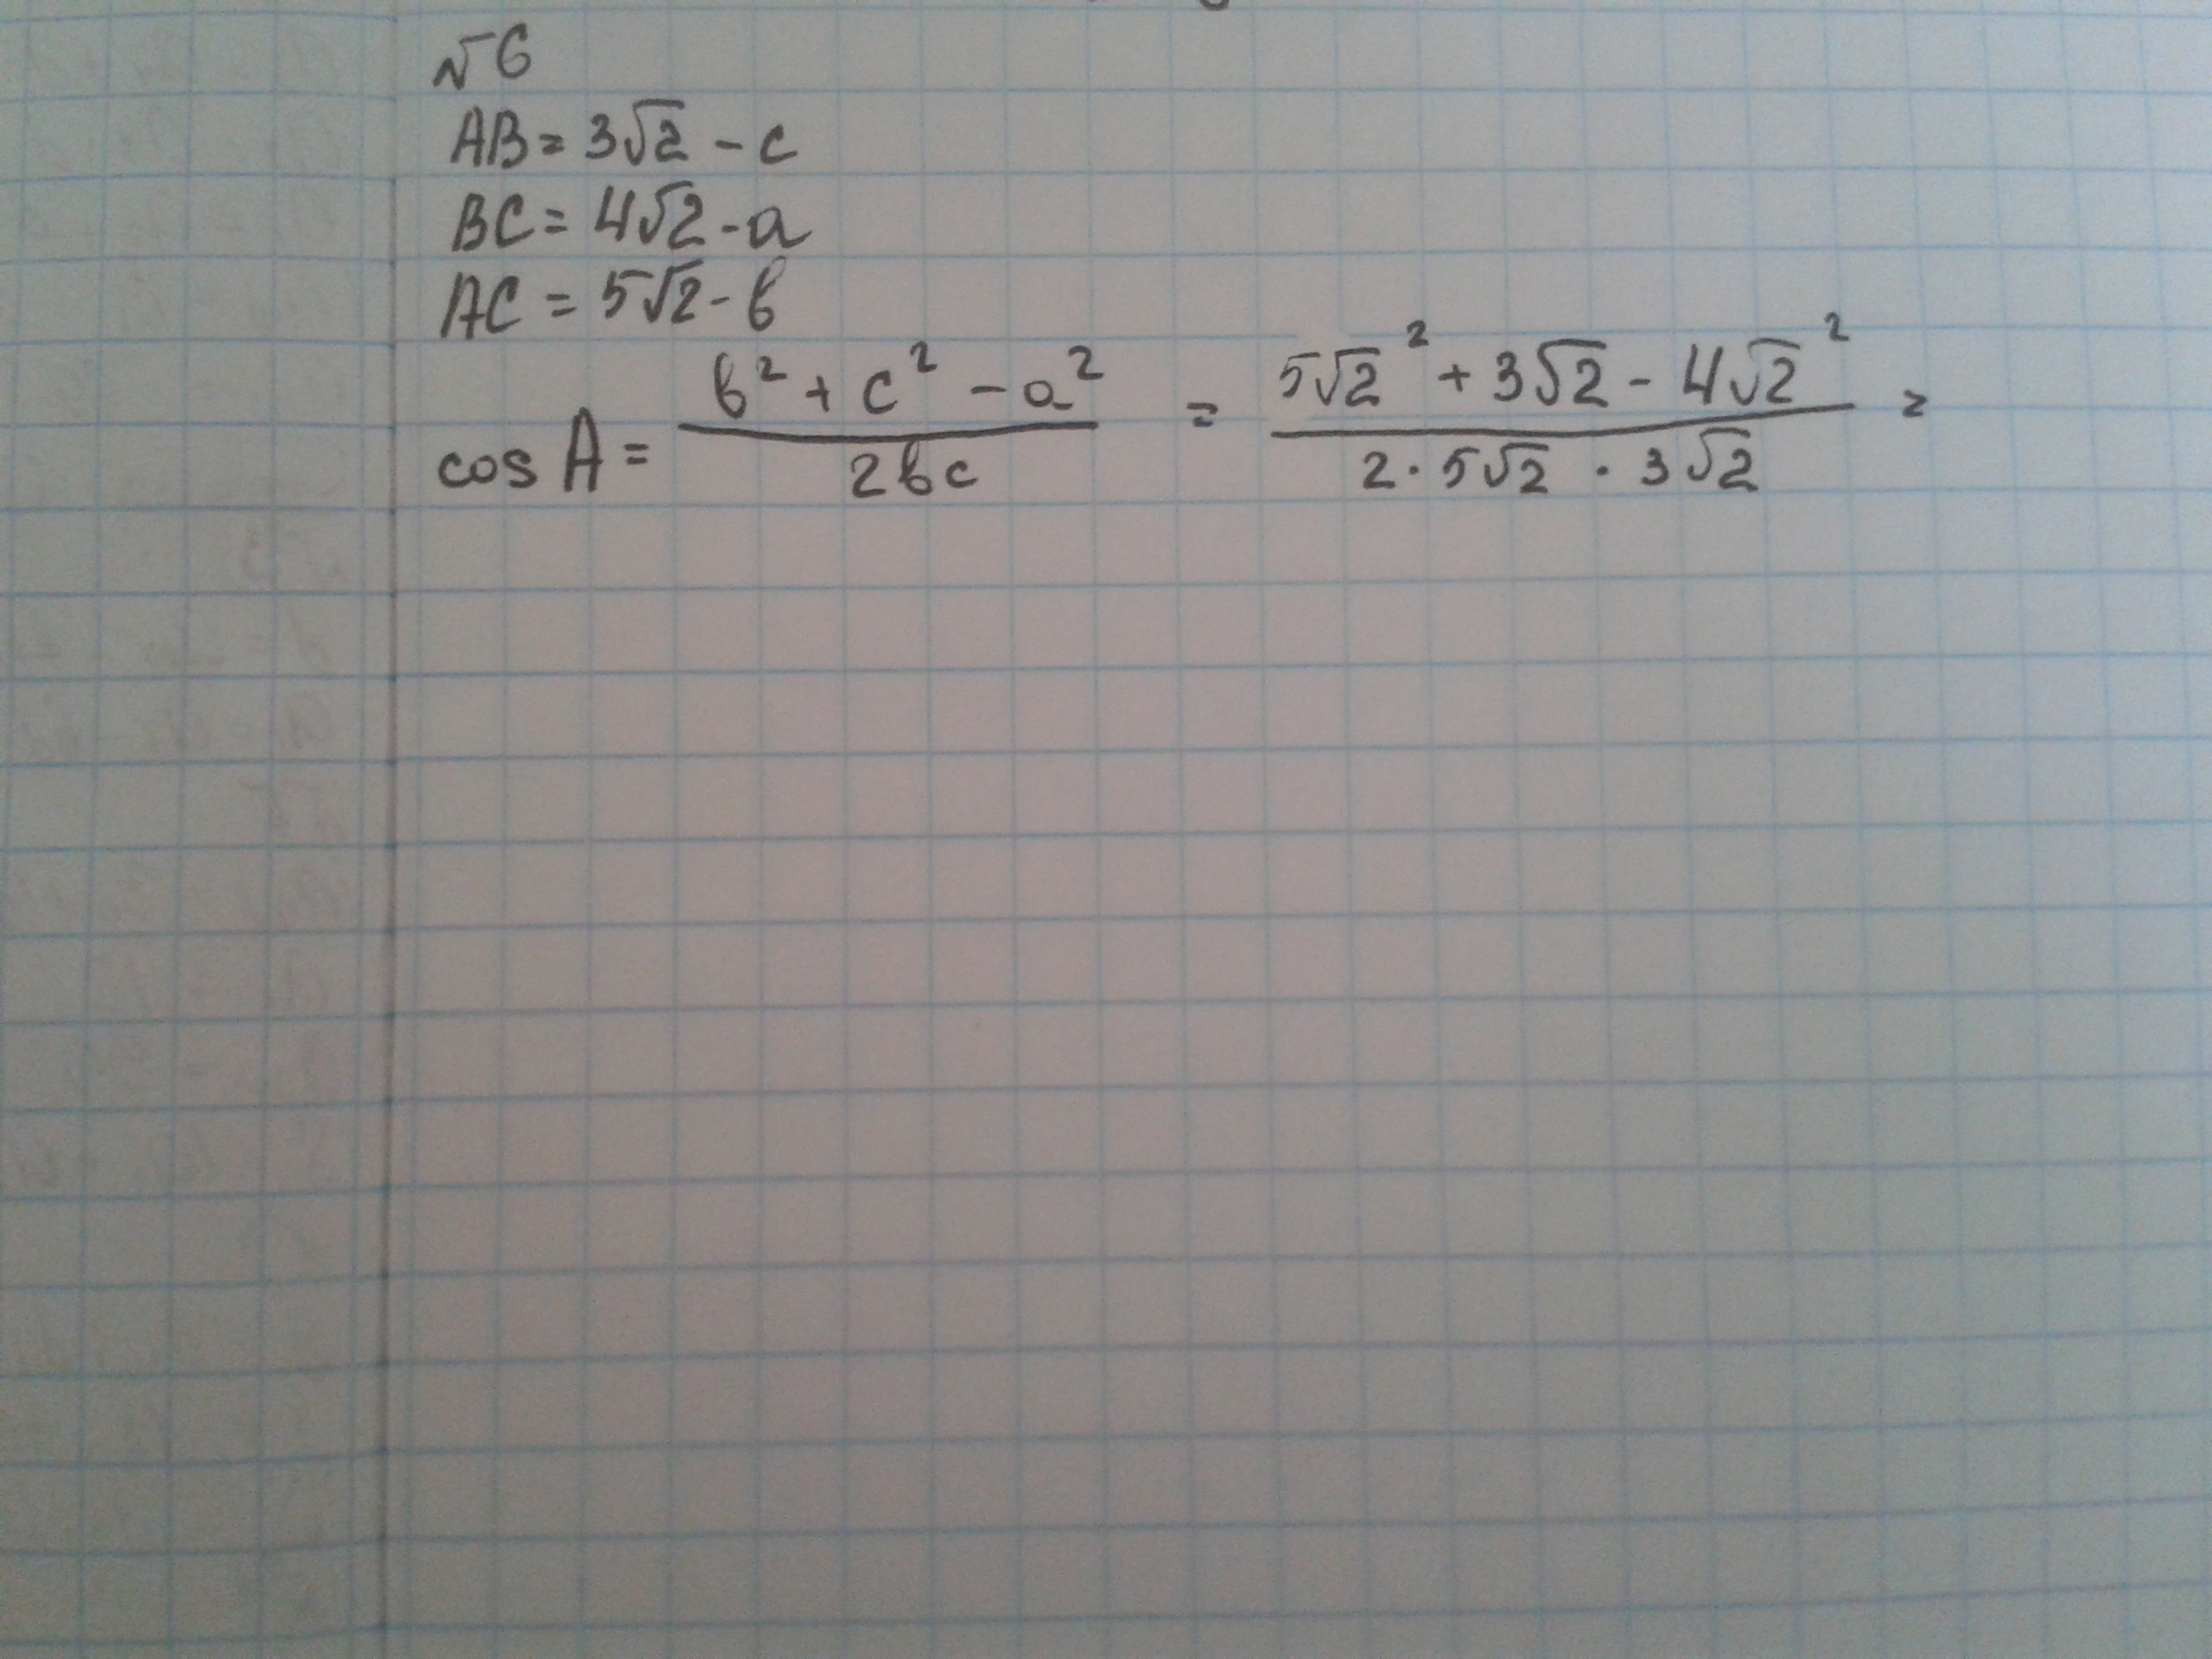 №6
AB = 3√2 - c
BC = 4√2 - a
AC = 5√2 - в
cos A = (в² + c² - a²) / (2вc) = (5√2² + 3√2 - 4√2²) / (2 · 5√2 · 3√2) =